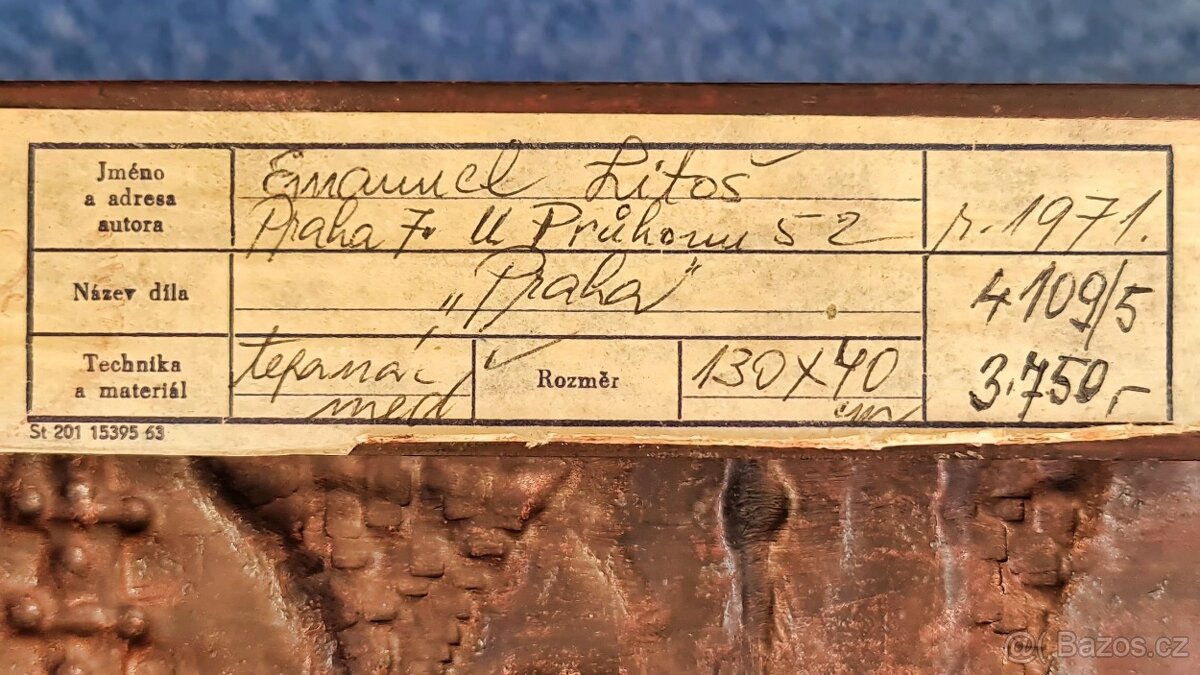 Jméno
a adresa
autora
Emanuel Litoš
Praha 7. U Průhonu 52
r. 1971.
Název díla
„Praha"
4109/5
Technika
a materiál
tepaná
měď
Rozměr
130x40
cm
3.750,-
St 201 15395 63
Bazos.cz